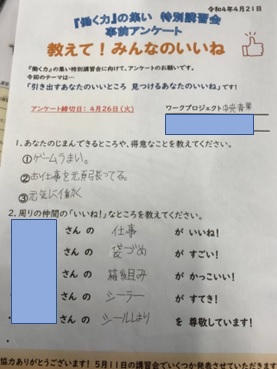 令和4年4月21日
『働く力』の集い 特別講習会
事前アンケート
教えて!みんなのいいね
『働く力』の集い特別講習会に向けて、アンケートのお願いです。
今回のテーマは…
「引き出すあなたのいいところ 見つけるあなたのいいね」です!
アンケート締切日:4月26日(火)
ワークプロジェクト
1.あなたのじまんできるところや、得意なことを教えてください。
①ゲームうまい。
②お仕事を元気張ってる。
③元気に働く
2.周りの仲間の「いいね!」なところを教えてください。
さんの 仕事 が いいね!
さんの 袋づめ が すごい!
さんの 箱組み が かっこいい!
さんの シーラー が すてき!
さんの シールはり を 尊敬しています!
協力ありがとうございます!5月11日の講習会でいくつか発表させていただきます